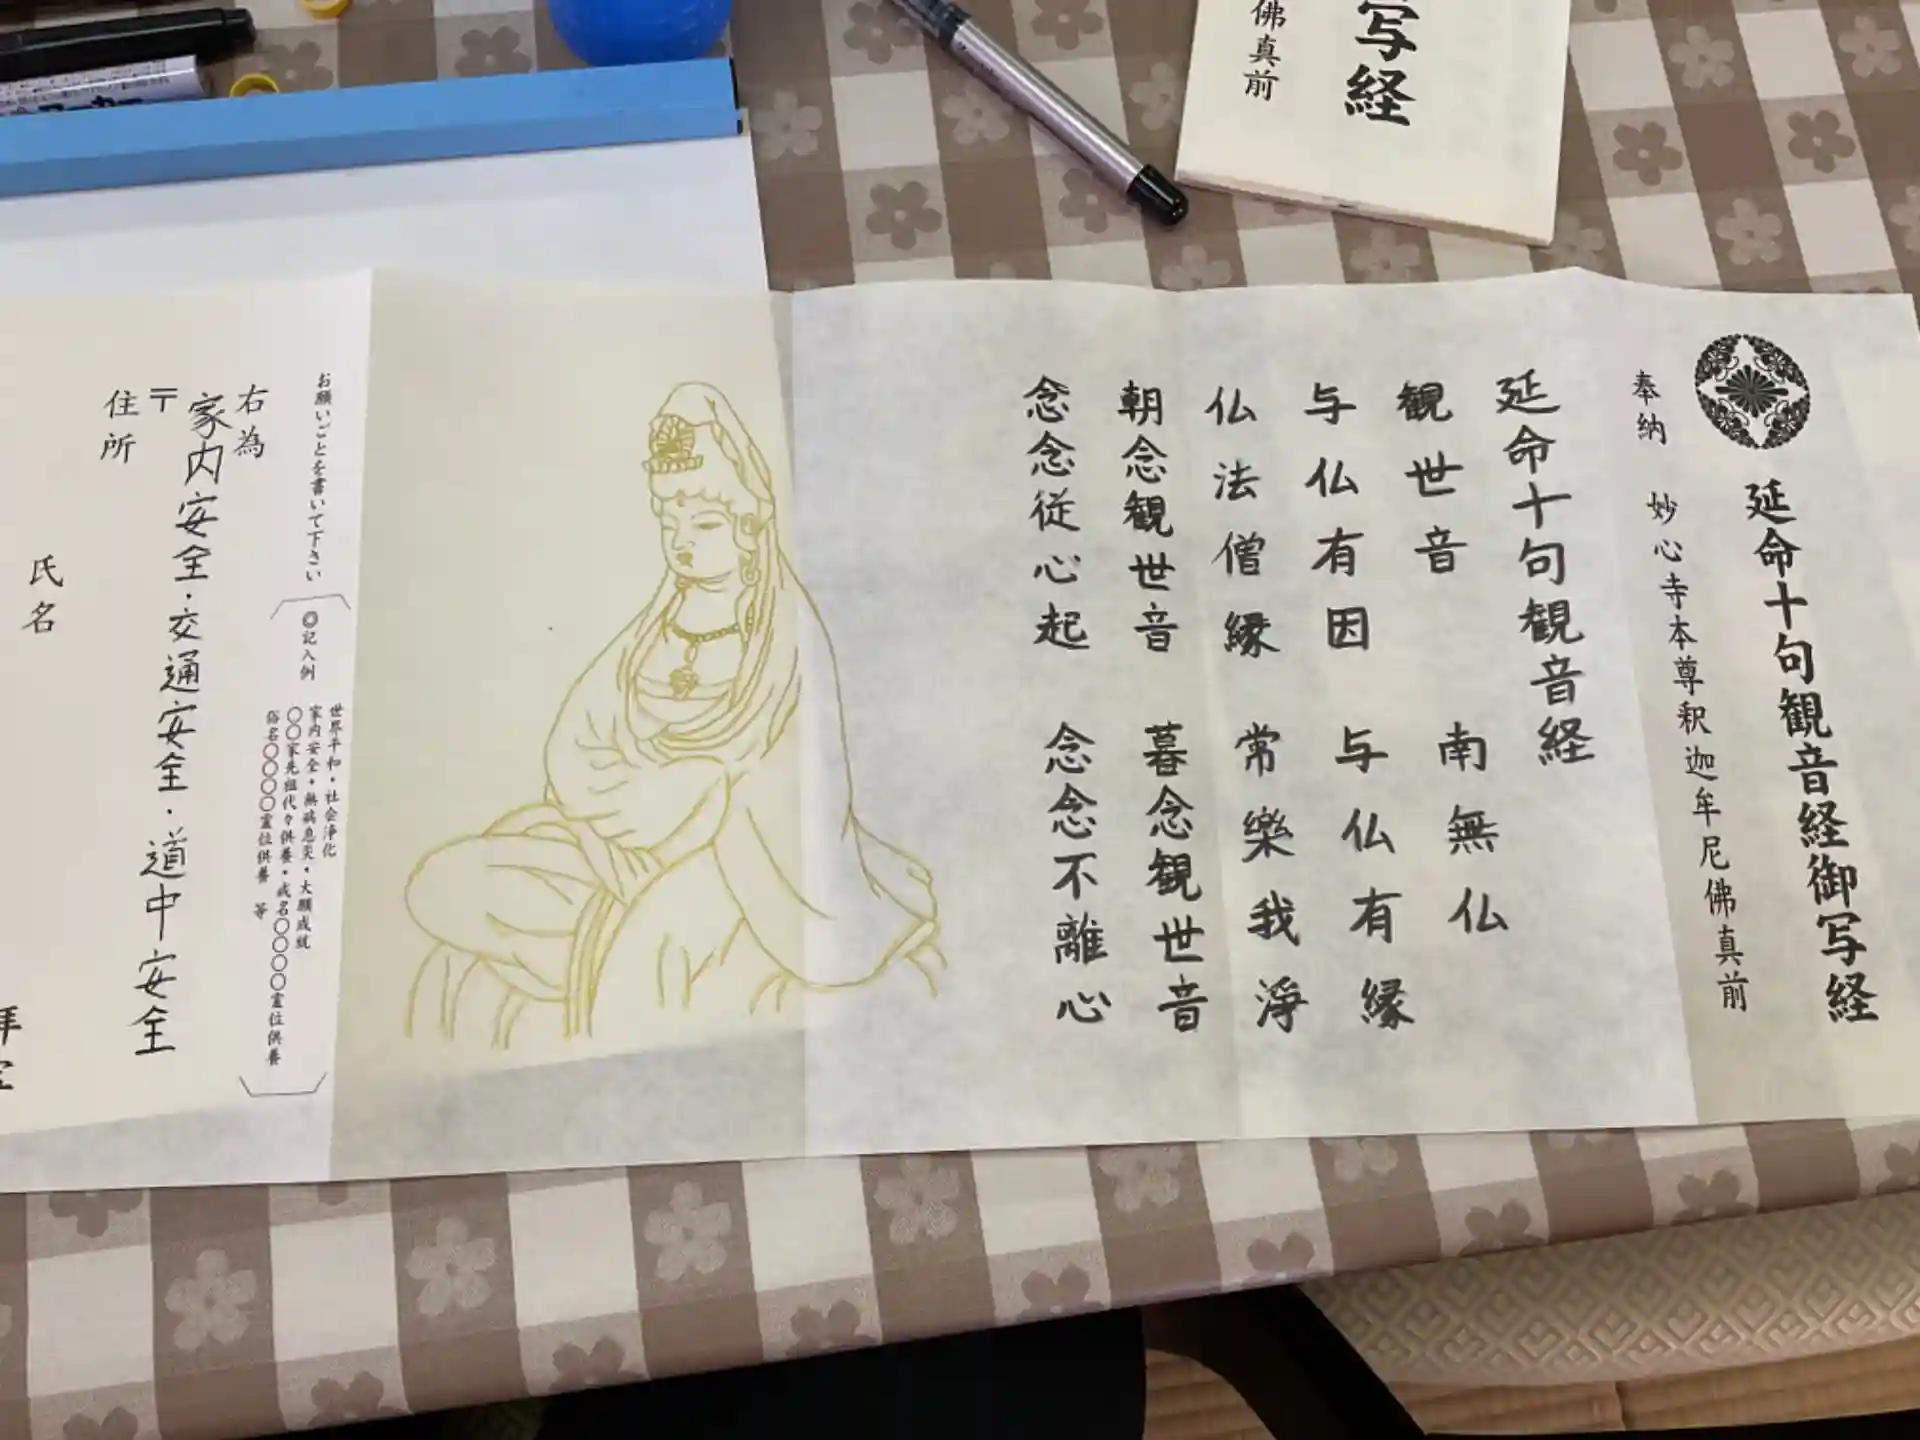 延命十句観音経御写経
奉納　妙心寺本尊釈迦牟尼佛真前
延命十句観音経
観世音　南無仏
与仏有因　与仏有縁
仏法僧縁　常樂我淨
朝念観世音　暮念観世音
念念従心起　念念不離心
お願いごとを書いて下さい
◎記入例
世界平和・社会浄化
家内安全・無病息災・大願成就
〇〇家先祖代々供養・戒名〇〇〇〇霊位供養
俗名〇〇〇〇霊位供養　等
右為
家内安全・交通安全・道中安全
〒
住所
氏名
拝
写経
佛真前